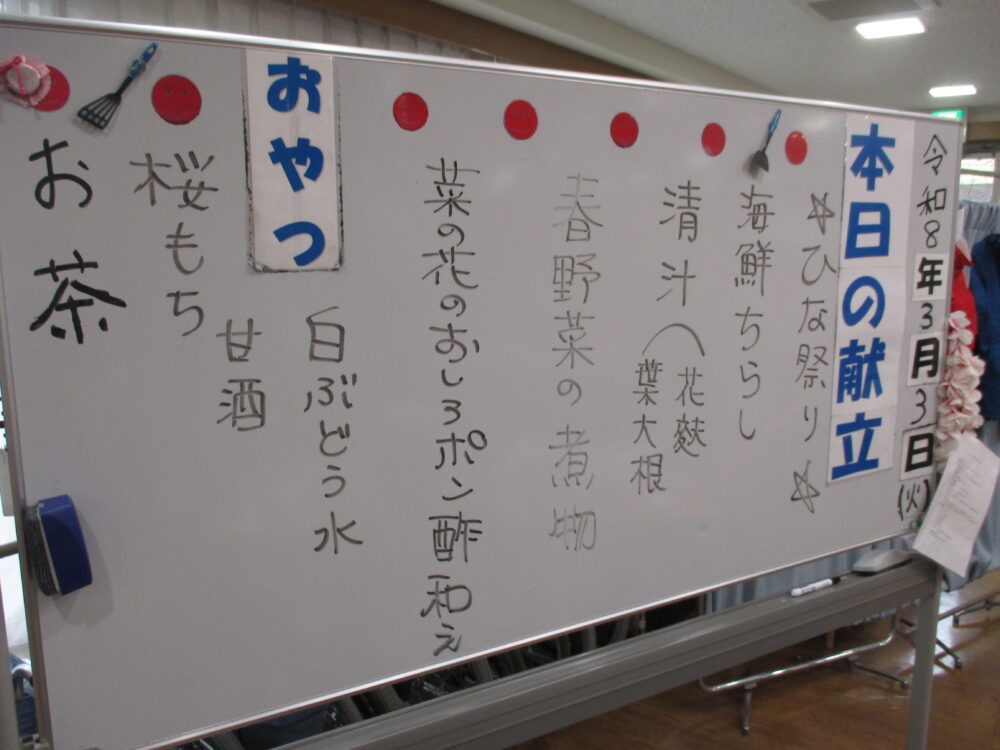 令和8年3月3日(火)
本日の献立
☆ひな祭り☆
海鮮ちらし
清汁(花麩
葉大根
春野菜の煮物
菜の花のおしろポン酢和え
おやつ
白ぶどう水
甘酒
桜もち
お茶